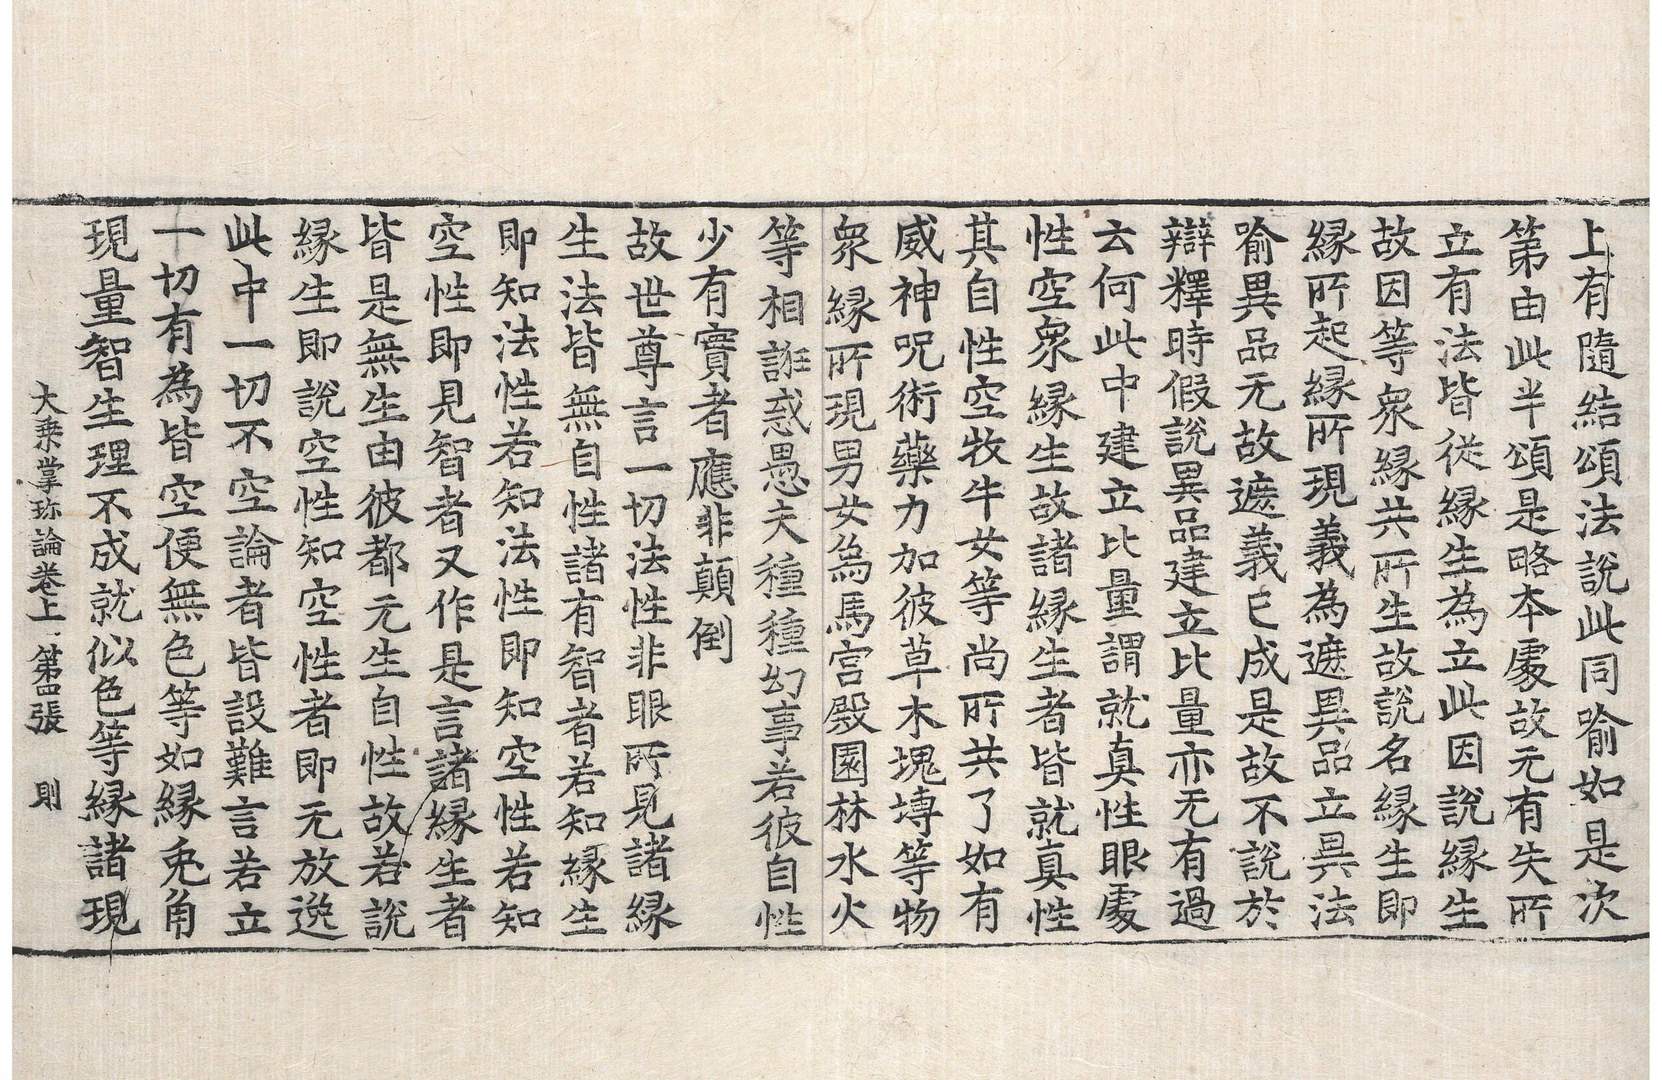 上有隨結頌法說此同喻如是次
第由此半頌是略本處故无有失所
立有法皆從緣生為立此因說緣生
故因等衆緣共所生故說名緣生即
緣所起緣所現義為遮異品立異法
喻異品无故遮義已成是故不說於
辯釋時假說異品建立比量亦无有過
云何此中建立比量謂就真性眼處
性空衆緣生故諸緣生者皆就真性
其自性空牧牛女等尚所共了如有
威神呪術藥力加彼草木塊塼等物
衆緣所現男女為馬宮殿園林水火
等相誑惑愚夫種種幻事若彼自性
少有實者應非顛倒
故世尊言一切法性非眼所見諸緣
生法皆無自性諸有智者若知緣生
即知法性若知法性即知空性若知
空性即見智者又作是言諸緣生者
皆是無生由彼都无生自性故若說
緣生即說空性知空性者即无放逸
此中一切不空論者皆設難言若立
一切有為皆空便無色等如緣兎角
現量智生理不成就似色等緣諸現
大乘掌珎論卷上 第四張 則